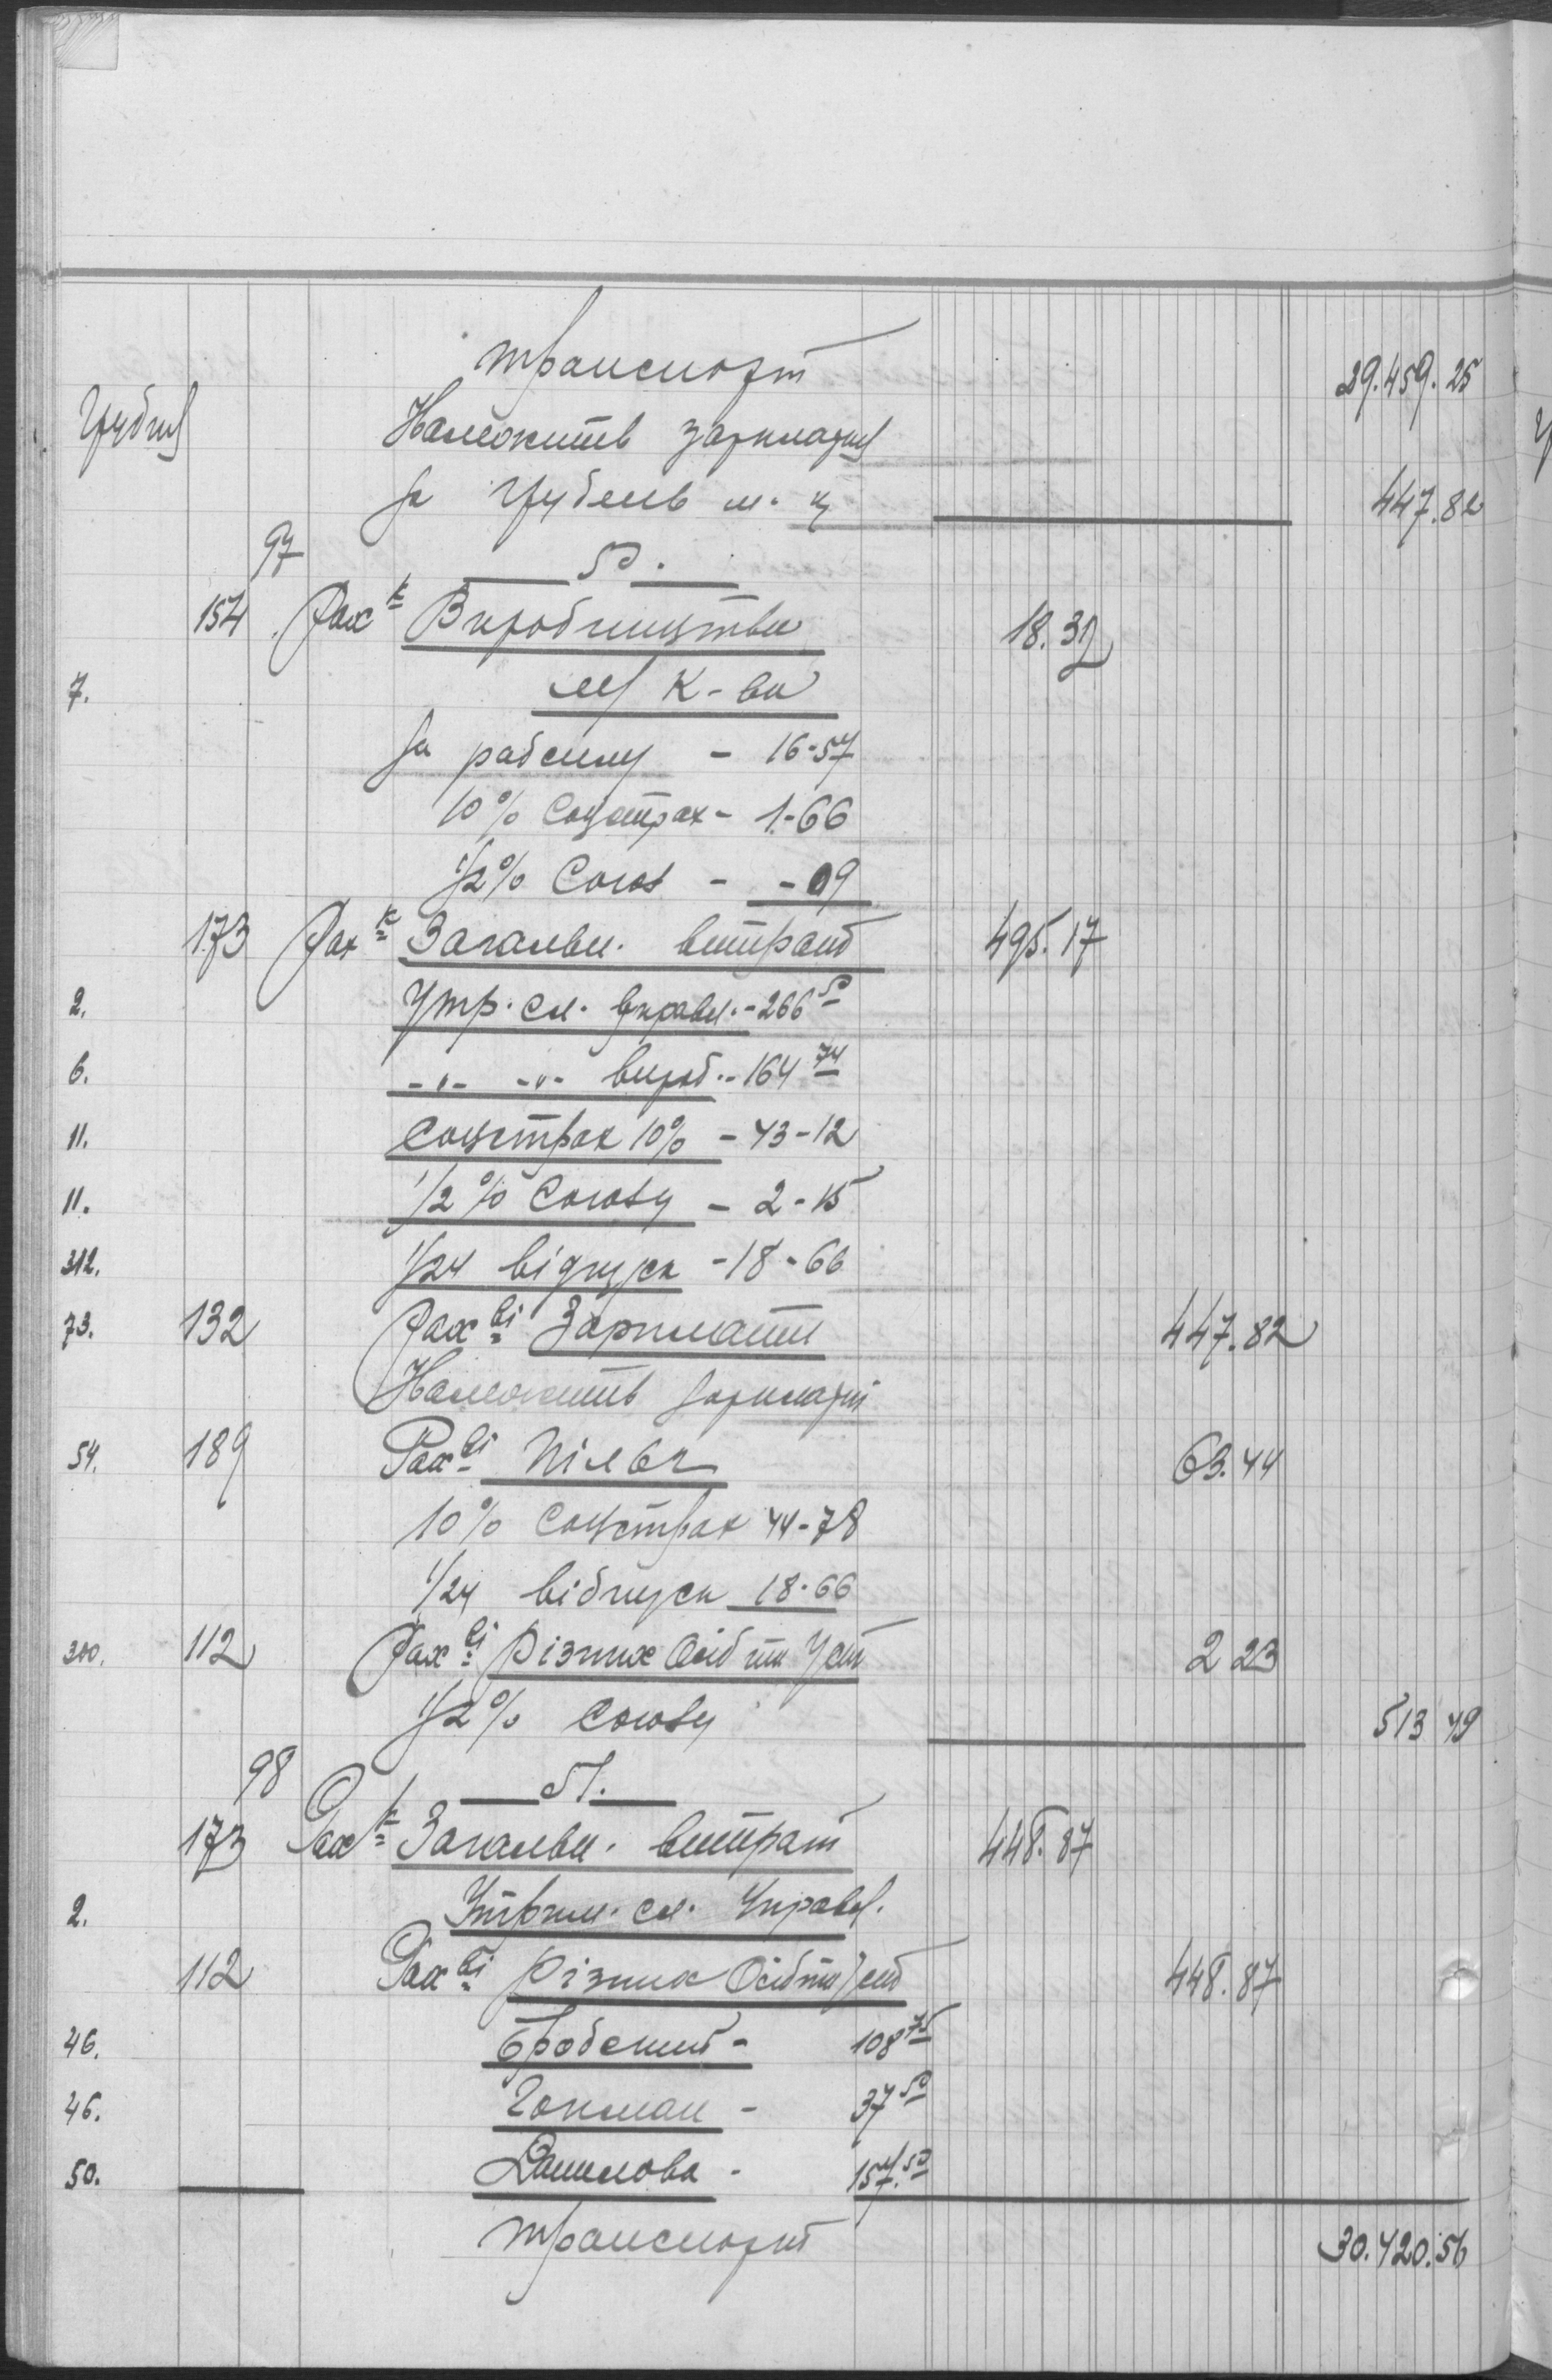 транспорт 29.459.25
Грудня Належить зарплатні
за грудень м. ц 447.82
97 50.
154 Рах к Виробництва 18.32
7. М/ К-ва
за рабсилу - 16-57
10% Соцстрах - 1-66
1/2% Союз - -09
173 Рах к Загальн. витрат 495.17
2. Утр. сл. управл. - 266 50
6. -"- -"- вироб. - 164 74
11. Соцстрах 10% - 43-12
11. 1/2% Союзу - 2-15
312. 1/24 відпуск - 18-66
73. 132 Рах ві Зарплати 447.82
Належить зарплатні
54. 189 Рах ві Пільг 63.44
10% соцстрах 44-78
1/24 відпуск 18-66
300. 112 Рах ві Різних Осіб та Уст 2 23
1/2% Союзу 513 49
98 51.
173 Рах к Загальн. витрат 448.87
2. Утрим. сл. Управл.
112 Рах ві Різних Осіб та Уст 448.87
46. Бродский - 108 75
46. Гокман - 37 50
50. Данилова - 157.50
транспорт 30.420.56